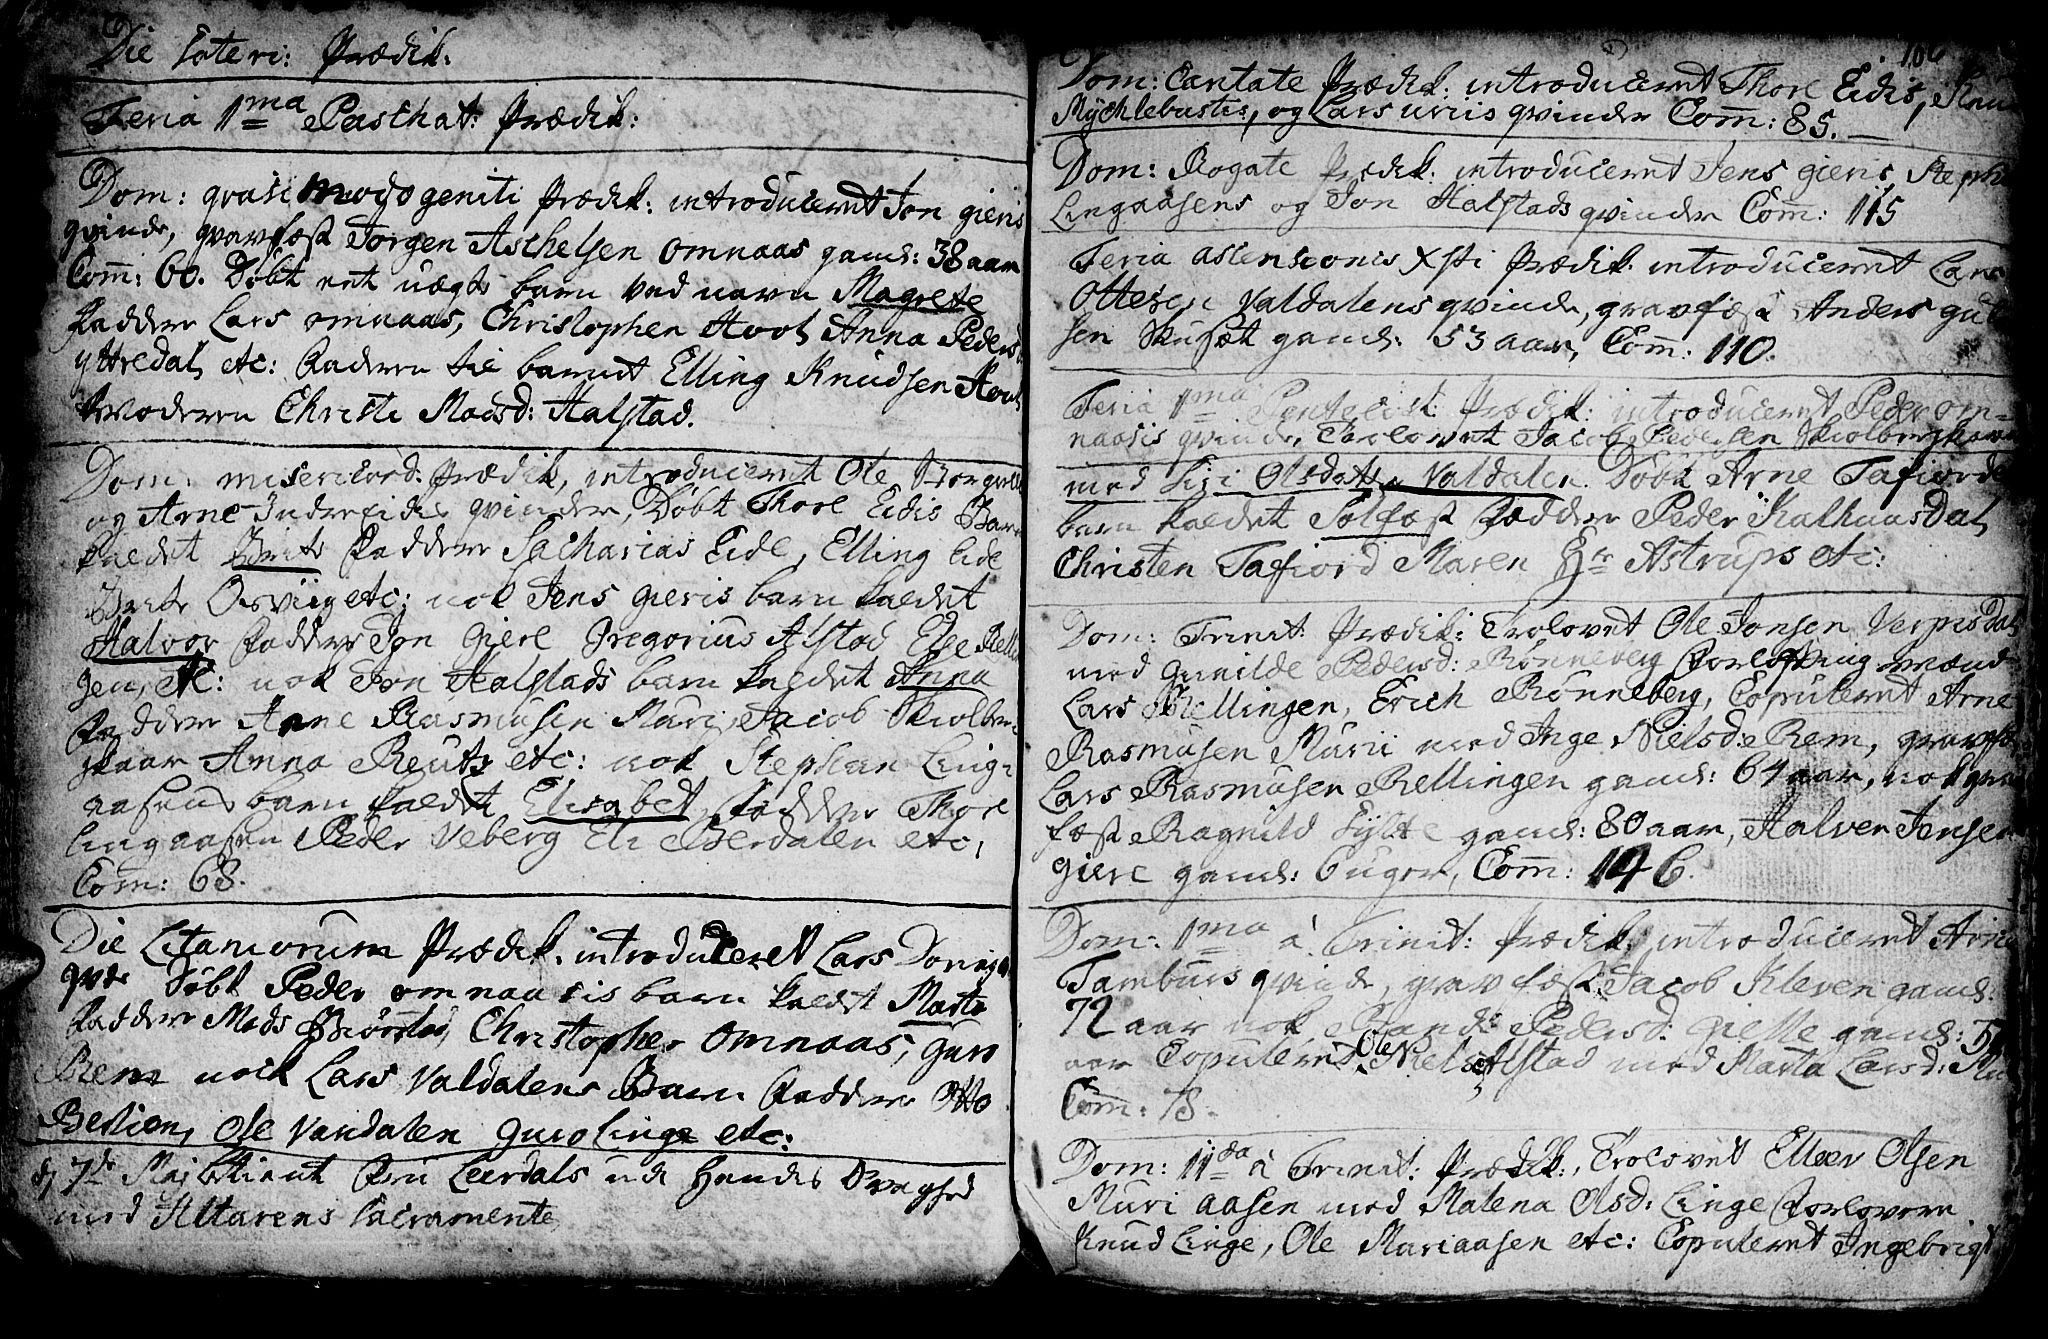 Die Sateri: Prædik:
Feria 1ma Paschat: Prædik:
Dom: qvasimodogeniti Prædik: introduceret Jon gieris
qvinde, gravfæst Jørgen Aschelsen omnaas gaml: 38 aar
Com̄: 60. Døbt eet uægte barn ved navn Magrete
Faddere Lars omnaas, Christopher Hool Anna Peders
yttredal, etc: Faderen til barnet Elling Knudsen Hool
Moderen Christi Madsd: Halstad.
Dom: misericord: Prædik, introduceret Ole
og Arne Indreeidis qvinder, Døbt Thore Eidis Barn
kaldet Brete Faddere Sacharias Eide, Elling Eide
Brete Osviig etc; nok Jens gieris barn kaldet
Halvor Faddere Jon Giere Gregorius Alstad Else Relli
gen, etc: nok Jon Halstads barn kaldet Anna
Faddere Arne Rasmusen Muri, Jacob Skiolber-
skaar Anna Reutz etc: nok Stephan Ling-
aasens barn kaldet Elisabet Faddere Thore
lingaasen Peder Veberg Eli Berdalen etc,
Com̄: 68.
Die Litaniorum Prædik. introduceret Lars
qvde Døbt Peder omnaasis barn kaldet Marte
Faddere Mads Christopher Omnaas, Guro
Rem nock Lars Valdalens Barn Faddere Otto
Bestien, Ole Vandalen Guro linge etc:
d 7de Maj betient Leerdals udi Hendes Svaghed
med Altarens Sacramente
106
Dom: Cantate Prædik. introduceret Thore Eidis, Knud
Mychlebustis, og Lars uriis qvinder Com̄: 85.
Dom: Rogate Prædik. introduceret Jens gieris, Steph
Lingaasens og Jon Halstads qvinder Com̄: 115
Feria ascensionis Xsti Prædik. introduceret Lars
Ottesen Valdalens qvinde, gravfæst Anders
sen gaml: 53 aar, Com̄: 110.
Feria 1ma Pentecost Prædik: introduceret Peder om-
naasis qvinde, Trolovet Jacob Pedersen Skiolberskaar
med Siri Olsdatter Valdalen. Døbt Arne Tafiords
barn kaldet Solfæst Faddere Peder Kalhuusdal,
Christen Tafiord Maren Hr Astrups etc:
Dom: Trinit: Prædik: Trolovet Ole Jonsen Verpesdal
med Gunilde Pedersd: Rønneberg Forlofning mænd
Lars Rellingen, Erich Rønneberg, Copuleret Arne
Rasmusen Murii med Inge Nielsd: Rem, gravfæst
Lars Rasmusen Rellingen gaml: 64 aar, nok grav
fæst Ragnild Sylte gaml: 80 aar, Halver Jensen
giere gaml: 6 uger, Com̄: 146.
Dom: 1ma à Trinit: Prædik: introduceret Arne
Tamburs qvinde, gravfæst Jacob Kleven gaml:
72 aar nok Rande Pedersd: gaml:
aar Copuleret Ole Niels Alstad med Marta Larsd:
Com̄: 78.
Dom: 11da à Trinit: Prædik:, Trolovet Elleer Olsen
Muri aasen med Malena Olsd: Linge Forlovere
Knud Linge, Ole Mariaasen etc: Copuleret Ingebrigt